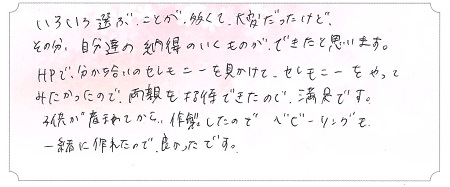 いろいろ選ぶことが多くて、大変だったけど、
その分、自分達の納得のいくものができたと思います。
HPで、分かち合いのセレモニーを見かけて、セレモニーをやって
みたかったので、両親を招待できたので、満足です。
子供が産まれてから、作製したので ベビーリングも
一緒に作れたので、良かったです。